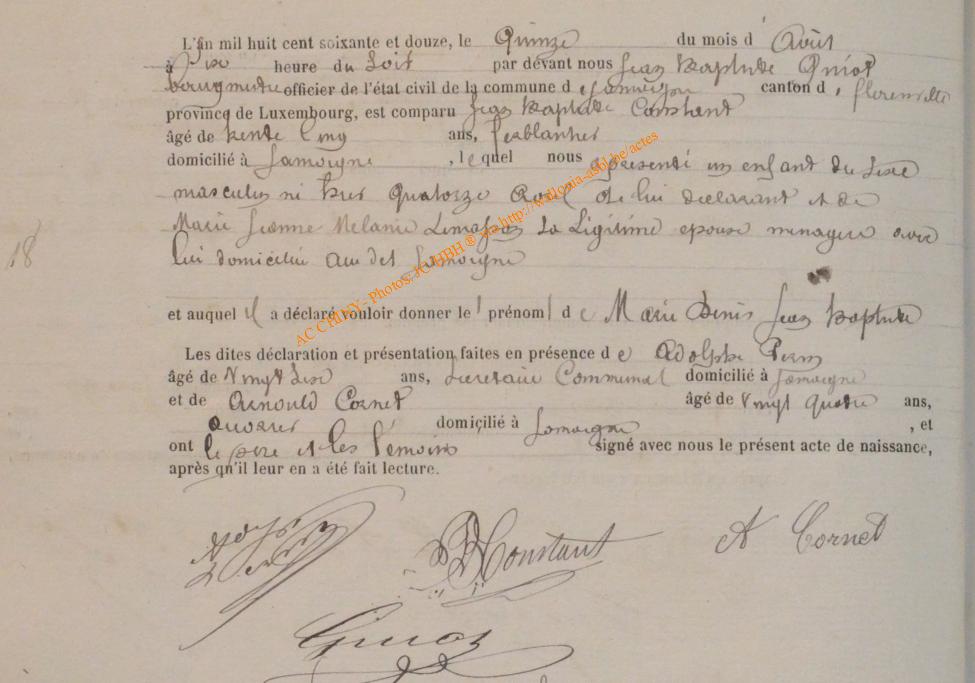 L'An mil huit cent soixante et douze, le Quinze du mois d' Août
à Six heure du Soir par devant nous Jean Baptiste Guiot
bourgmestre officier de l'état civil de la commune d e Jamoigne canton d e florenville
province de Luxembourg, est comparu Jean Baptiste Constant
âgé de trente Cinq ans, ferblantier
domicilié à Jamoigne , lequel nous a presenté un enfant du sexe
masculin né hier quatorze Août de lui declarant et de
Marie Jeanne Melanie Lemason sa Légitime epouse menagere avec
lui domicilié au dit Jamoigne
18
et auquel il a déclaré vouloir donner le prénom d e Marie Denis Jean Baptiste
Les dites déclaration et présentation faites en présence d e Adolphe
âgé de Vingt Six ans, Secretaire Communal domicilié à Jamoigne
et de Arnould Cornet âgé de Vingt quatre ans,
domicilié à Jamoigne , et
ont le pere et les témoins signé avec nous le présent acte de naissance,
après qu'il leur en a été fait lecture.
Constant
A Cornet
Guiot
AC CHINY- Photos: JC HBH ® via http://wallonia-asbl.be/actes